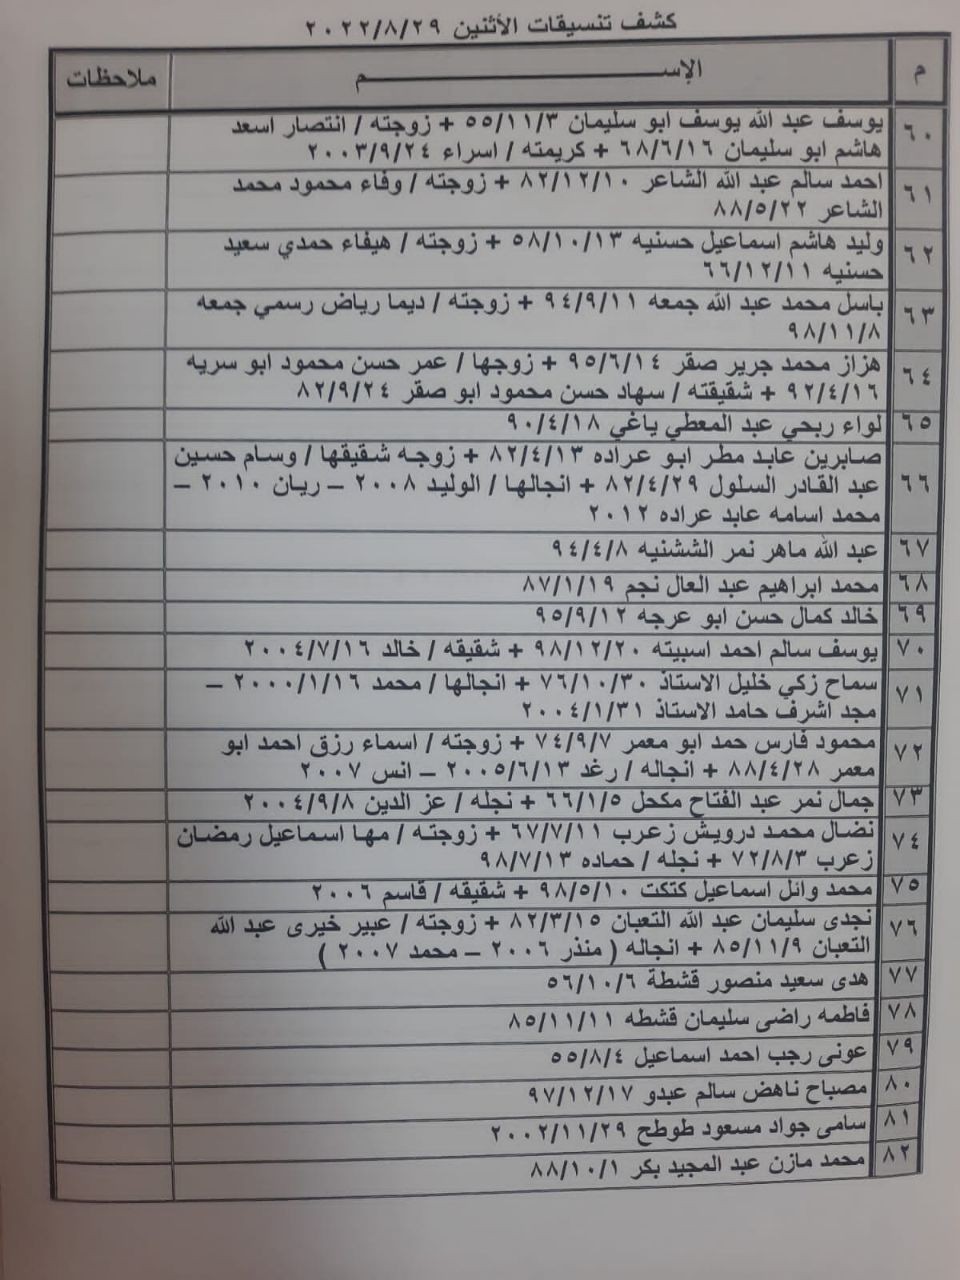 كشف تنسيقات الأثنين ٢٠٢٢/٨/٢٩
م الإســـــــــــــــــــــــم ملاحظات
٦٠ يوسف عبد الله يوسف ابو سليمان ٥٥/١١/٣ + زوجته / انتصار اسعد
هاشم ابو سليمان ٦٨/٦/١٦ + كريمته / اسراء ٢٠٠٣/٩/٢٤
٦١ احمد سالم عبد الله الشاعر ٨٢/١٢/١٠ + زوجته / وفاء محمود محمد
الشاعر ٨٨/٥/٢٢
٦٢ وليد هاشم اسماعيل حسنيه ٥٨/١٠/١٣ + زوجته / هيفاء حمدي سعيد
حسنيه ٦٦/١٢/١١
٦٣ باسل محمد عبد الله جمعه ٩٤/٩/١١ + زوجته / ديما رياض رسمي جمعه
٩٨/١١/٨
٦٤ هزاز محمد جرير صقر ٩٥/٦/١٤ + زوجها / عمر حسن محمود ابو سريه
٩٢/٤/١٦ + شقيقته / سهاد حسن محمود ابو صقر ٨٢/٩/٢٤
٦٥ لواء ربحي عبد المعطي ياغي ٩٠/٤/١٨
٦٦ صابرين عابد مطر ابو عراده ٨٢/٤/١٣ + زوجه شقيقها / وسام حسين
عبد القادر السلول ٨٢/٤/٢٩ + انجالها / الوليد ٢٠٠٨ – ريان ٢٠١٠ –
محمد اسامه عابد عراده ٢٠١٢
٦٧ عبد الله ماهر نمر الششنيه ٩٤/٤/٨
٦٨ محمد ابراهيم عبد العال نجم ٨٧/١/١٩
٦٩ خالد كمال حسن ابو عرجه ٩٥/٩/١٢
٧٠ يوسف سالم احمد اسبيته ٩٨/١٢/٢٠ + شقيقه / خالد ٢٠٠٤/٧/١٦
٧١ سماح زكي خليل الاستاذ ٧٦/١٠/٣٠ + انجالها / محمد ٢٠٠٠/١/١٦ –
مجد اشرف حامد الاستاذ ٢٠٠٤/١/٣١
٧٢ محمود فارس حمد ابو معمر ٧٤/٩/٧ + زوجته / اسماء رزق احمد ابو
معمر ٨٨/٤/٢٨ + انجاله / رغد ٢٠٠٥/٦/١٣ – انس ٢٠٠٧
٧٣ جمال نمر عبد الفتاح مكحل ٦٦/١/٥ + نجله / عز الدين ٢٠٠٤/٩/٨
٧٤ نضال محمد درويش زعرب ٦٧/٧/١١ + زوجته / مها اسماعيل رمضان
زعرب ٧٢/٨/٣ + نجله / حماده ٩٨/٧/١٣
٧٥ محمد وائل اسماعيل كتكت ٩٨/٥/١٠ + شقيقه / قاسم ٢٠٠٦
٧٦ نجدى سليمان عبد الله التعبان ٨٢/٣/١٥ + زوجته / عبير خيرى عبد الله
التعبان ٨٥/١١/٩ + انجاله ( منذر ٢٠٠٦ – محمد ٢٠٠٧ )
٧٧ هدى سعيد منصور قشطة ٥٦/١٠/٦
٧٨ فاطمه راضى سليمان قشطه ٨٥/١١/١١
٧٩ عونى رجب احمد اسماعيل ٥٥/٨/٤
٨٠ مصباح ناهض سالم عبدو ٩٧/١٢/١٧
٨١ سامى جواد مسعود طوطح ٢٠٠٢/١١/٢٩
٨٢ محمد مازن عبد المجيد بكر ٨٨/١٠/١